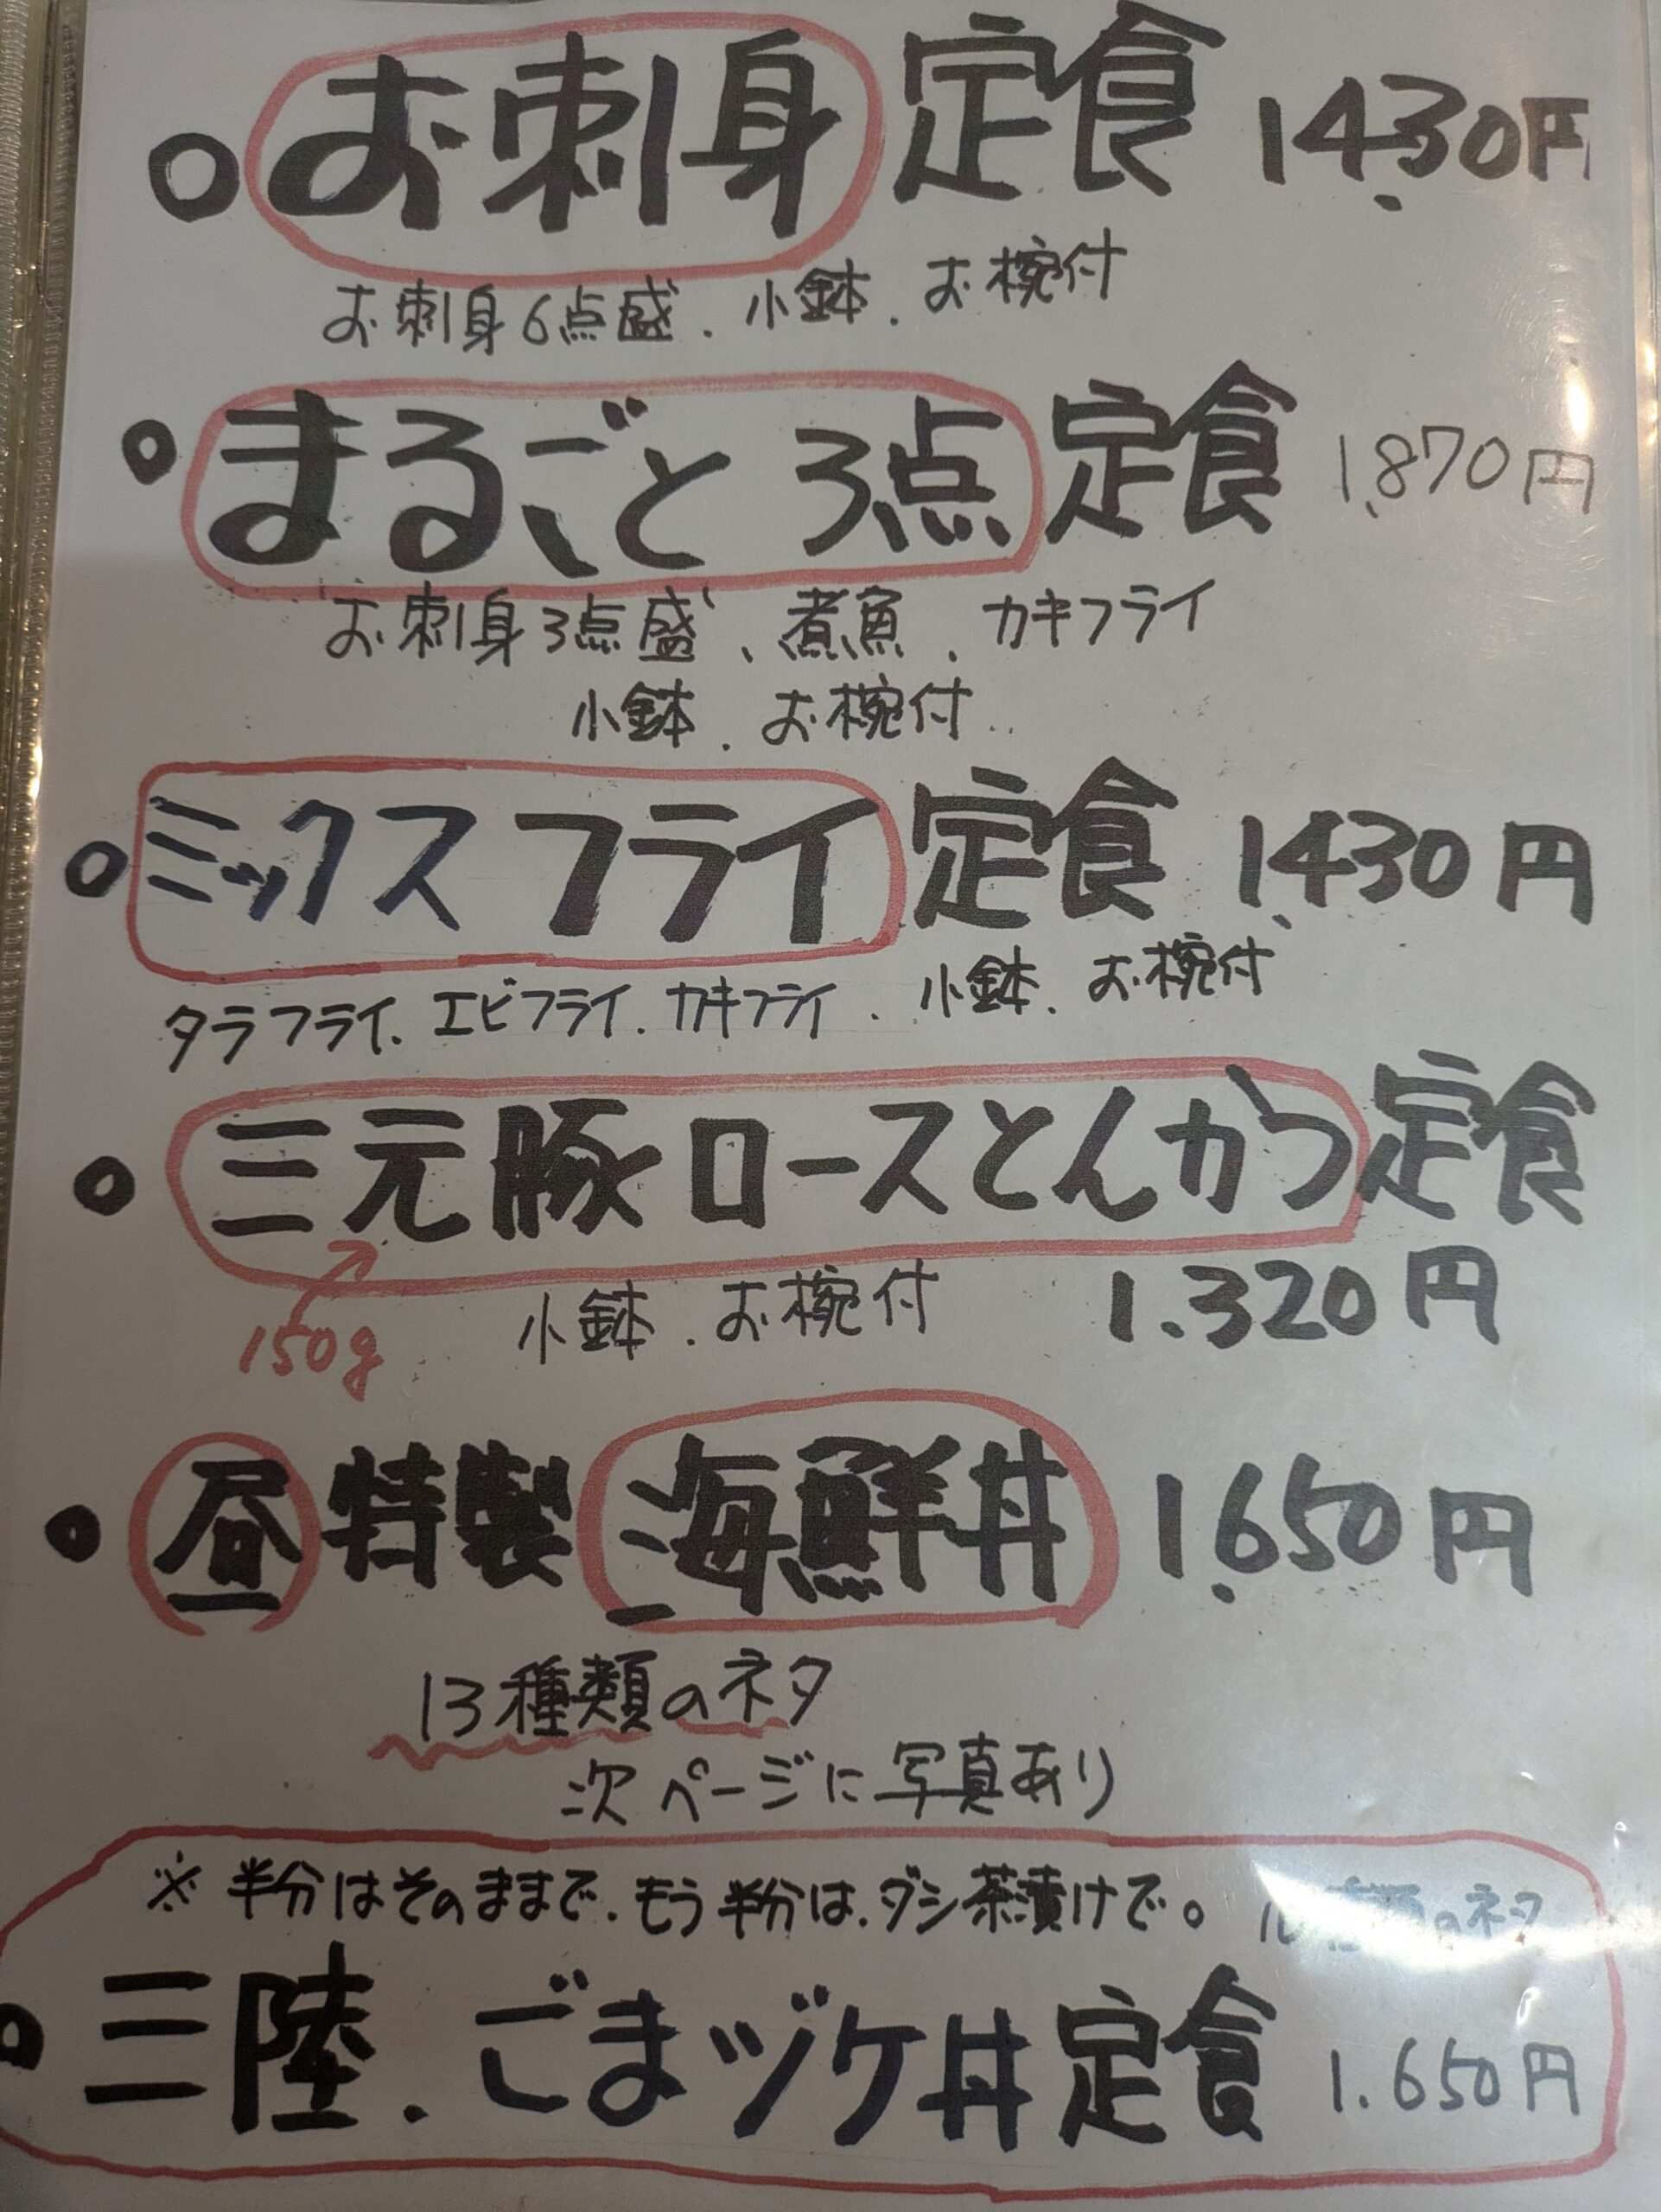 ○お刺身定食 1,430円
お刺身6点盛、小鉢、お椀付
○まるごと3点定食 1,870円
お刺身3点盛、煮魚、カキフライ
小鉢、お椀付
○ミックスフライ定食 1,430円
タラフライ、エビフライ、カキフライ、小鉢、お椀付
○三元豚ロースとんかつ定食
150g 小鉢、お椀付 1.320円
○昼特製海鮮丼 1,650円
13種類のネタ
次ページに写真あり
※半分はそのままで、もう半分は、ダシ茶漬けで。 種類のネタ
○三陸.ごまヅケ丼定食 1.650円